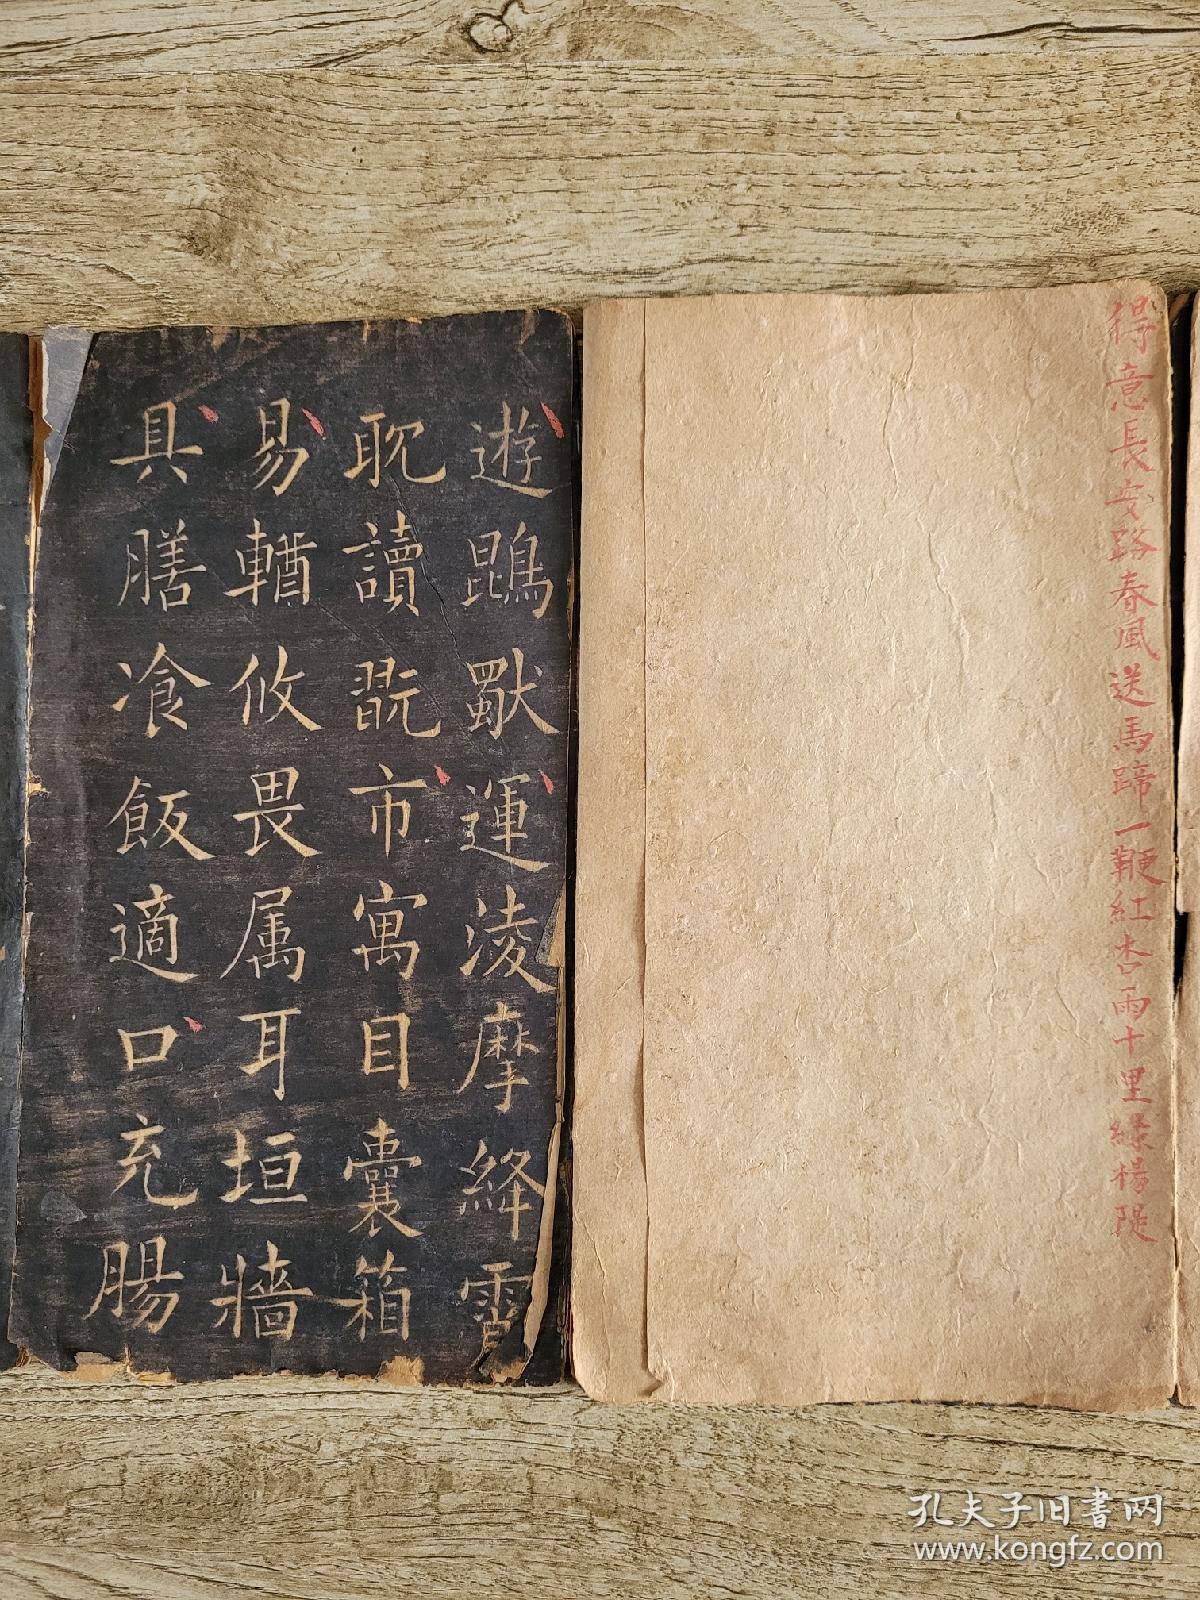 得意長安路春風送馬蹄一鞭紅杏雨十里綠楊隄
遊鵾獸運淩摩絳霄
耽讀翫市寓目囊箱
易輶攸畏属耳垣牆
具膳飡飯適口充腸
孔夫子旧书网
www.kongfz.com